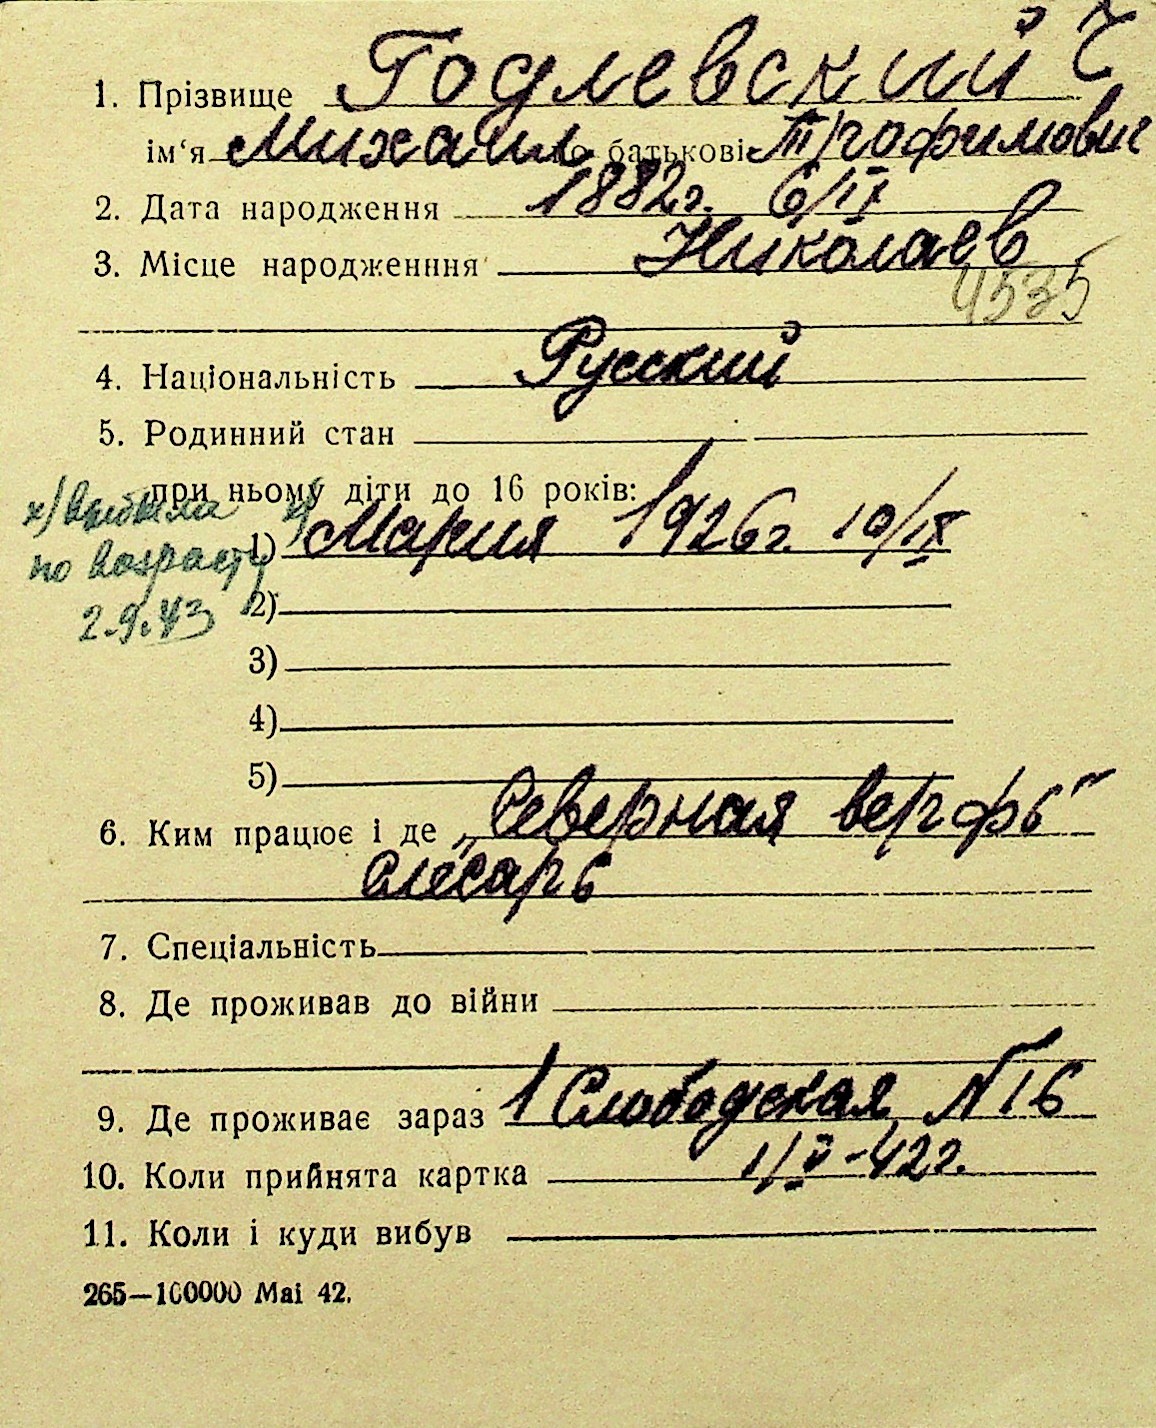 1. Прізвище Годлевский Ч
ім'я Михаил по батькові Трофимович
2. Дата народження 1882г. 6/IX
3. Місце народженння Николаев
4535
4. Національність Русский
5. Родинний стан
при ньому діти до 16 років:
х) выбыла х)
1) Мария 1926г. 10/IX
по возрасту
2)
2.9.43
3)
4)
5)
6. Ким працює і де „Северная верфь"
Слесарь
7. Спеціальність
8. Де проживав до війни
9. Де проживає зараз 1 Слободская N 16
10. Коли прийнята картка 1/V-42г.
11. Коли і куди вибув
265—100000 Mai 42.